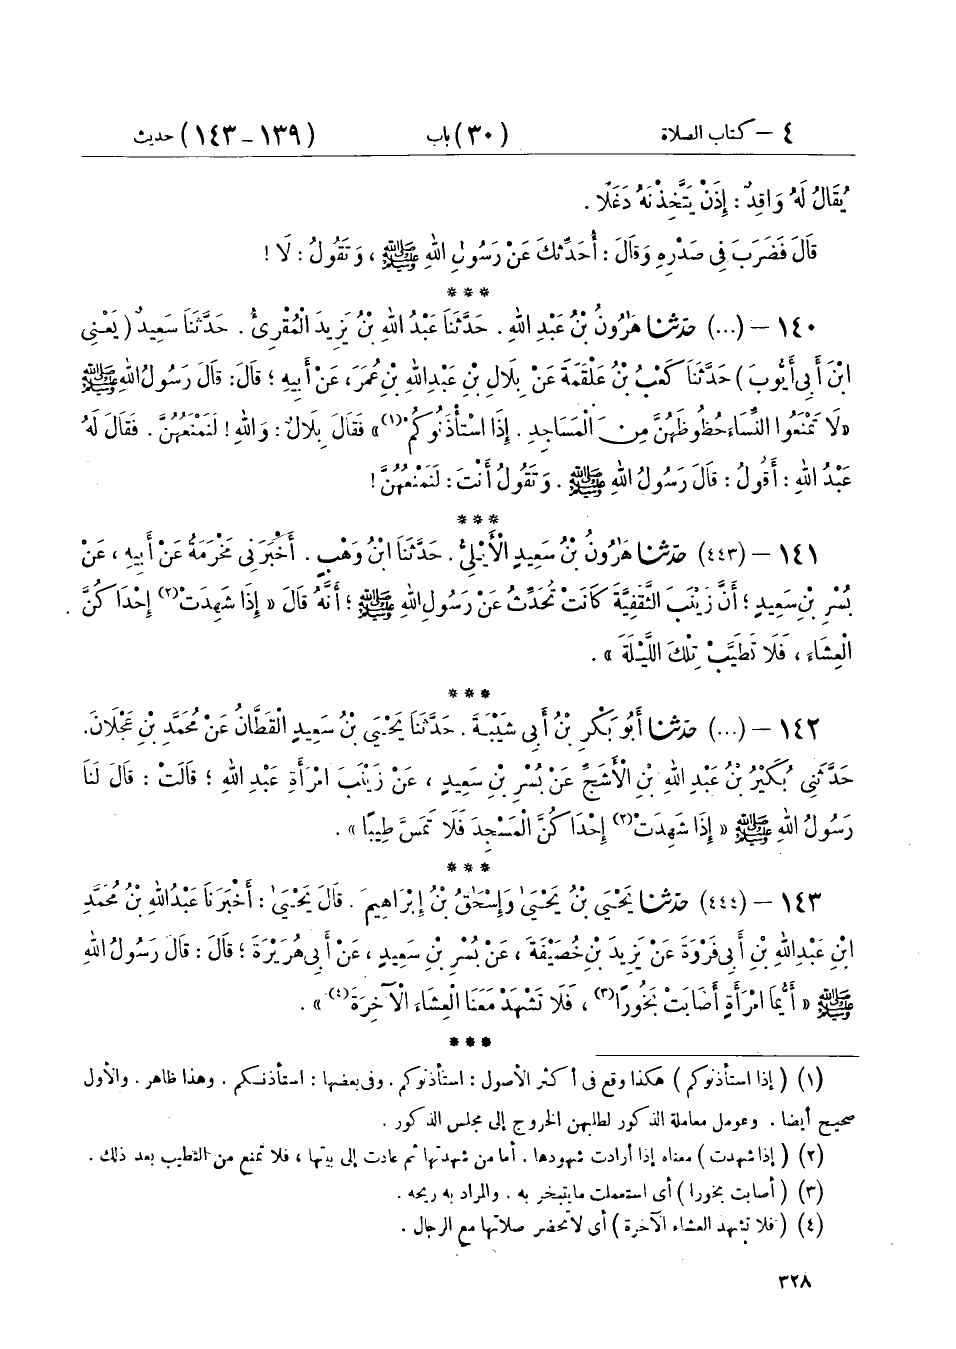 ٤ – كتاب الصلاة (٣٠) باب (١٣٩ – ١٤٣) حديث
يُقَالُ لَهُ وَاقِدٌ : إِذَنْ يَتَّخِذْنَهُ دَغَلًا .
قَالَ فَضَرَبَ فِي صَدْرِهِ وَقَالَ : أُحَدِّثُكَ عَنْ رَسُولِ اللهِ ﷺ ، وَتَقُولُ : لَا !
***
١٤٠ – (...) حَدَّثَنَا هٰرُونُ بْنُ عَبْدِ اللهِ . حَدَّثَنَا عَبْدُ اللهِ بْنُ يَزِيدَ الْمُقْرِئُ . حَدَّثَنَا سَعِيدٌ ( يَعْنِي
ابْنَ أَبِي أَيُّوبَ ) حَدَّثَنَا كَعْبُ بْنُ عَلْقَمَةَ عَنْ بِلَالِ بْنِ عَبْدِ اللهِ بْنِ عُمَرَ ، عَنْ أَبِيهِ ؛ قَالَ : قَالَ رَسُولُ اللهِ ﷺ
«لَا تَمْنَعُوا النِّسَاءَ حُظُوظَهُنَّ مِنَ الْمَسَاجِدِ . إِذَا اسْتَأْذَنُوكُمْ(١)» فَقَالَ بِلَالٌ : وَاللهِ ! لَنَمْنَعُهُنَّ . فَقَالَ لَهُ
عَبْدُ اللهِ : أَقُولُ : قَالَ رَسُولُ اللهِ ﷺ . وَتَقُولُ أَنْتَ : لَنَمْنَعُهُنَّ !
***
١٤١ – (٤٤٣) حَدَّثَنَا هٰرُونُ بْنُ سَعِيدٍ الْأَيْلِيُّ . حَدَّثَنَا ابْنُ وَهْبٍ . أَخْبَرَنِي مَخْرَمَةُ عَنْ أَبِيهِ ، عَنْ
بُسْرِ بْنِ سَعِيدٍ ؛ أَنَّ زَيْنَبَ الثَّقَفِيَّةَ كَانَتْ تُحَدِّثُ عَنْ رَسُولِ اللهِ ﷺ ؛ أَنَّهُ قَالَ « إِذَا شَهِدَتْ(٢) إِحْدَاكُنَّ
الْعِشَاءَ ، فَلَا تَطَيَّبْ تِلْكَ اللَّيْلَةَ » .
***
١٤٢ – (...) حَدَّثَنَا أَبُو بَكْرِ بْنُ أَبِي شَيْبَةَ . حَدَّثَنَا يَحْيَىٰ بْنُ سَعِيدٍ الْقَطَّانُ عَنْ مُحَمَّدِ بْنِ عَجْلَانَ.
حَدَّثَنِي بُكَيْرُ بْنُ عَبْدِ اللهِ بْنِ الْأَشَجِّ عَنْ بُسْرِ بْنِ سَعِيدٍ ، عَنْ زَيْنَبَ امْرَأَةِ عَبْدِ اللهِ ؛ قَالَتْ : قَالَ لَنَا
رَسُولُ اللهِ ﷺ « إِذَا شَهِدَتْ(٢) إِحْدَاكُنَّ الْمَسْجِدَ فَلَا تَمَسَّ طِيبًا » .
***
١٤٣ – (٤٤٤) حَدَّثَنَا يَحْيَىٰ بْنُ يَحْيَىٰ وَإِسْحَاقُ بْنُ إِبْرَاهِيمَ . قَالَ يَحْيَىٰ : أَخْبَرَنَا عَبْدُ اللهِ بْنُ مُحَمَّدِ
ابْنِ عَبْدِ اللهِ بْنِ أَبِي فَرْوَةَ عَنْ يَزِيدَ بْنِ خُصَيْفَةَ ، عَنْ بُسْرِ بْنِ سَعِيدٍ ، عَنْ أَبِي هُرَيْرَةَ ؛ قَالَ : قَالَ رَسُولُ اللهِ
ﷺ « أَيُّمَا امْرَأَةٍ أَصَابَتْ بَخُورًا(٣) ، فَلَا تَشْهَدْ مَعَنَا الْعِشَاءَ الْآخِرَةَ(٤) » .
***
(١) ( إذا استأذنوكم ) هكذا وقع في أكثر الأصول : استأذنوكم . وفي بعضها : استأذنكم . وهذا ظاهر . والأول
صحيح أيضا . وعومل معاملة الذكور لطلبهن الخروج إلى مجلس الذكور .
(٢) ( إذا شهدت ) معناه إذا أرادت شهودها . أما من شهدتها ثم عادت إلى بيتها ، فلا تمنع من التطيب بعد ذلك .
(٣) ( أصابت بخورا ) أي استعملت ما يتبخر به . والمراد به ريحه .
(٤) ( فلا تشهد العشاء الآخرة ) أي لا تحضر صلاتها مع الرجال .
٣٢٨